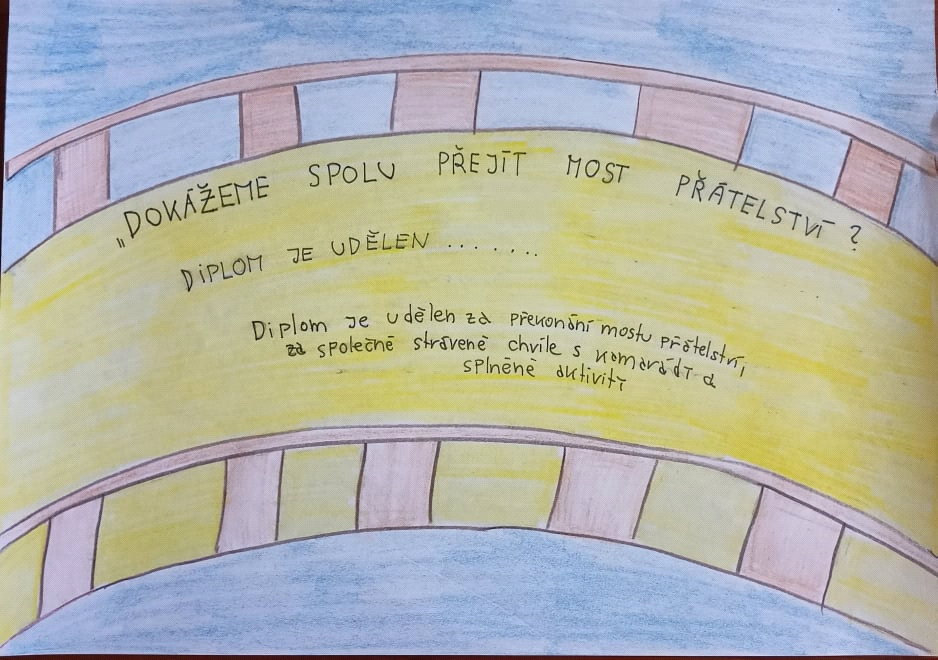 „DOKÁŽEME SPOLU PŘEJÍT MOST PŘÁTELSTVÍ?
DIPLOM JE UDĚLEN .......
Diplom je udělen za překonání mostu přátelství,
za společně strávené chvíle s kamarádí a
splněné aktivití